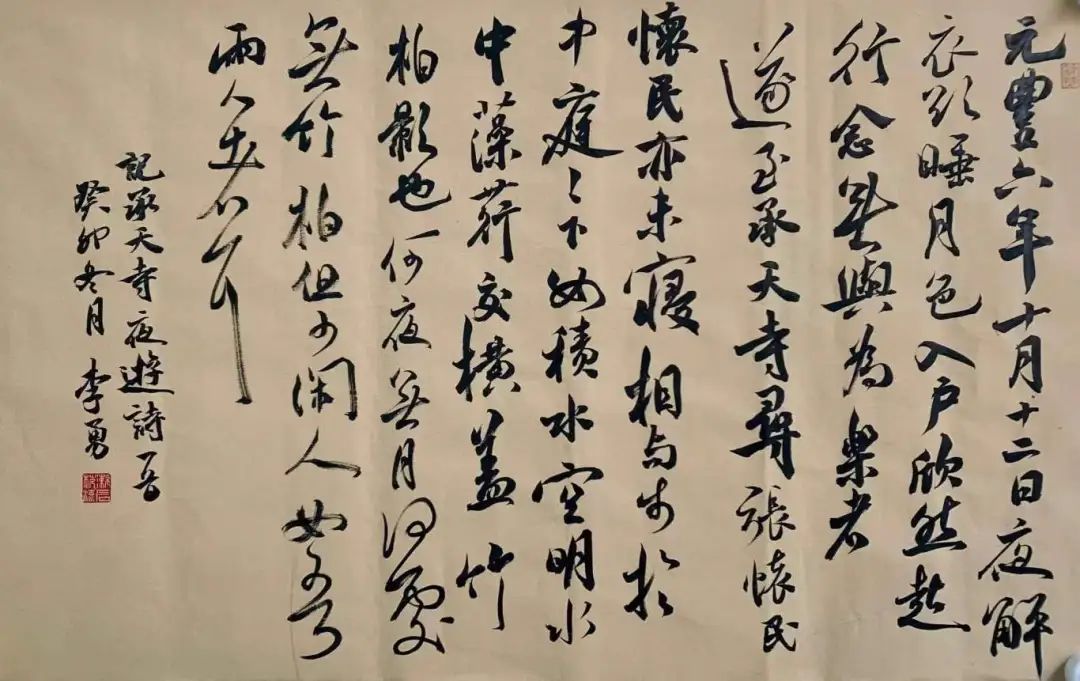 元豐六年十月十二日夜解
衣欲睡月色入户欣然起
行念無與為樂者
遂至承天寺尋張懷民
懷民亦未寢相与步於
中庭〻下如積水空明水
中藻荇交橫蓋竹
柏影也何夜無月何處
無竹柏但少閑人如吾
兩人者耳
記承天寺夜遊詩一首
癸卯冬月李勇